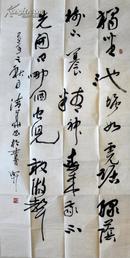 獨坐池塘如虎踞綠蔭
樹下養精神春來我不
先開口哪個虫兒敢做聲